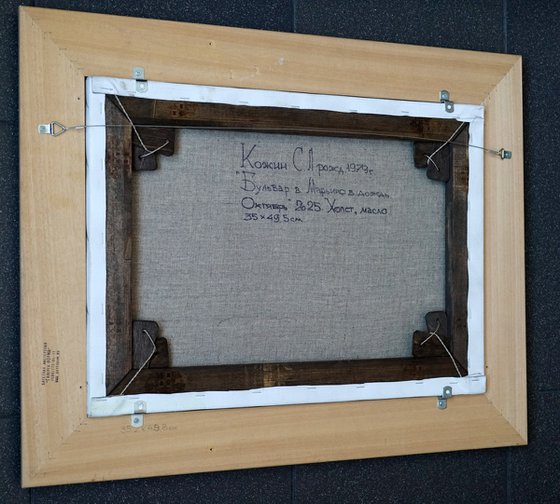 Кожин С.Л рожд 1979г.
"Бульвар в Марьино в дождь
Октябрь" 2025. Холст, масло
35×49,5см